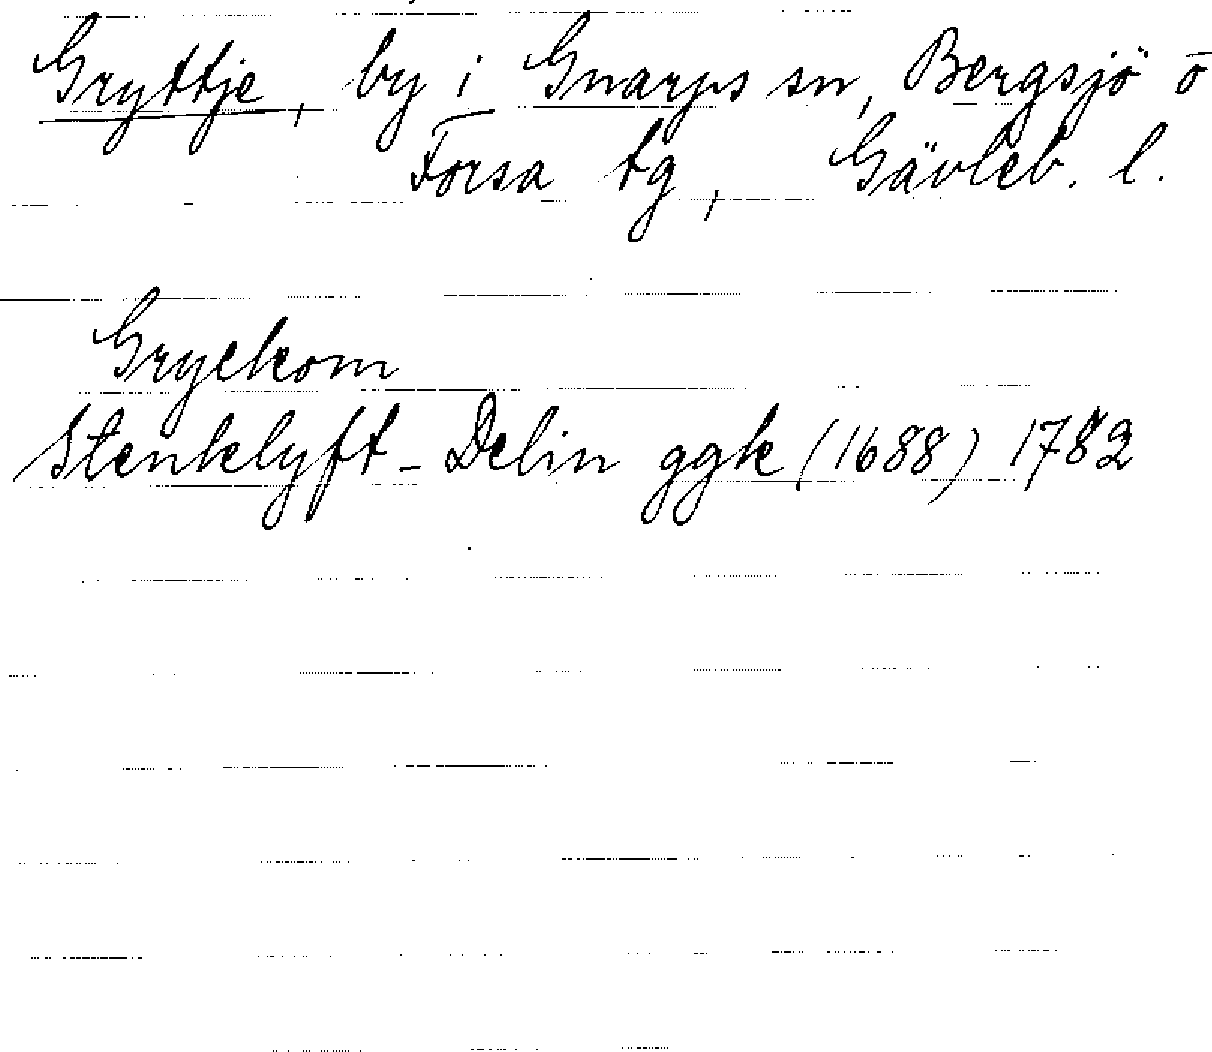 Gryttje, by i Gnarps sn, Bergsjö o
Forsa tg, Gävleb. l.
Gryckom
Stenklyft - Delin ggk (1688) 1782